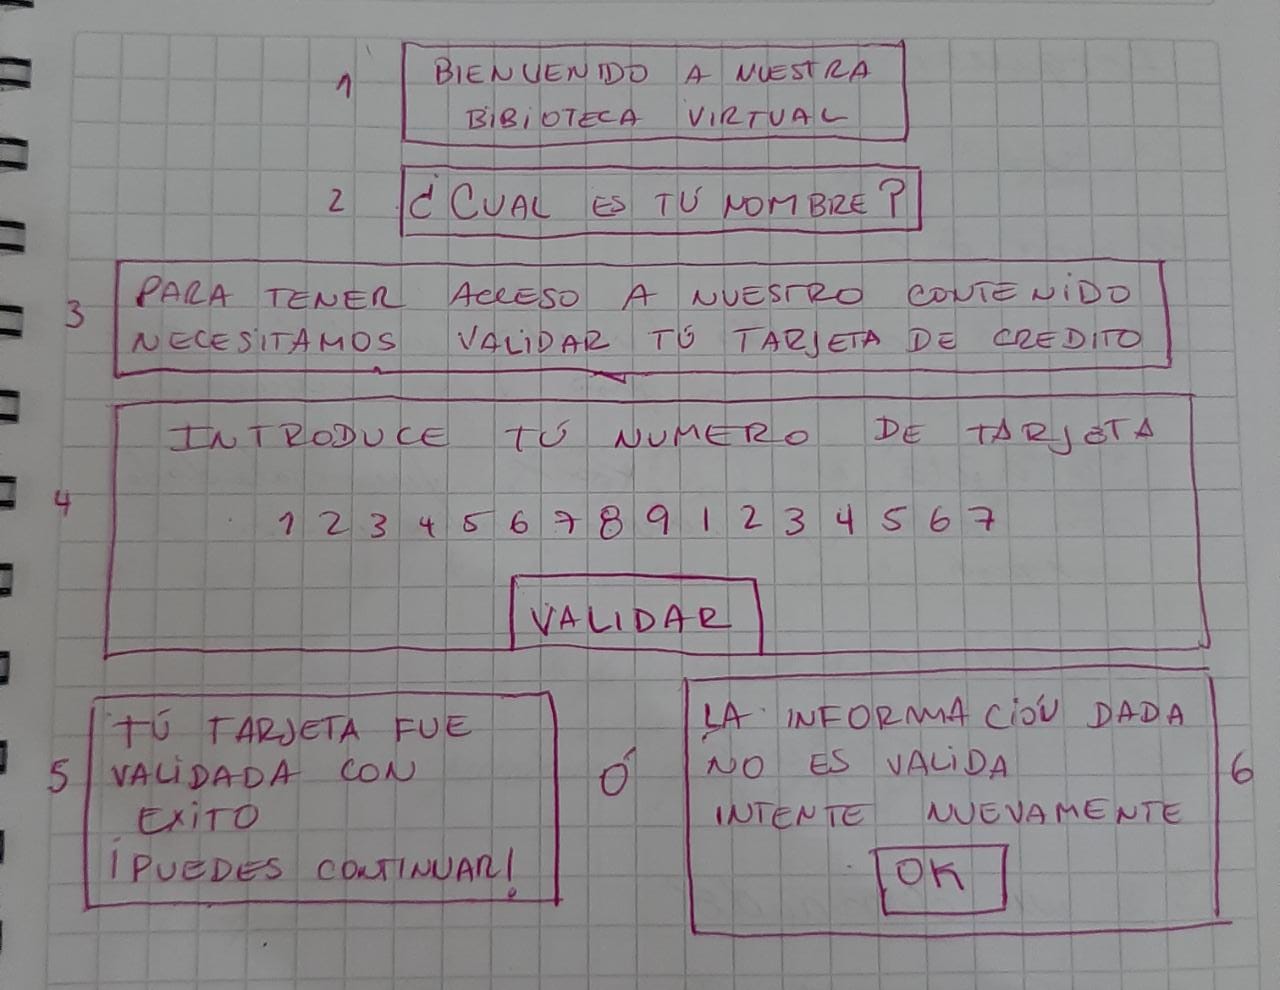 1 BIENVENIDO A NUESTRA
BIBIOTECA VIRTUAL
2 ¿CUAL ES TÚ NOMBRE?
PARA TENER ACCESO A NUESTRO CONTENIDO
3 NECESITAMOS VALIDAR TÚ TARJETA DE CREDITO
INTRODUCE TÚ NUMERO DE TARJETA
4 1 2 3 4 5 6 7 8 9 1 2 3 4 5 6 7
VALIDAR
TÚ TARJETA FUE
5 VALIDADA CON
EXITO
¡PUEDES CONTINUAR!
Ó
LA INFORMACIÓN DADA
NO ES VALIDA 6
INTENTE NUEVAMENTE
OK